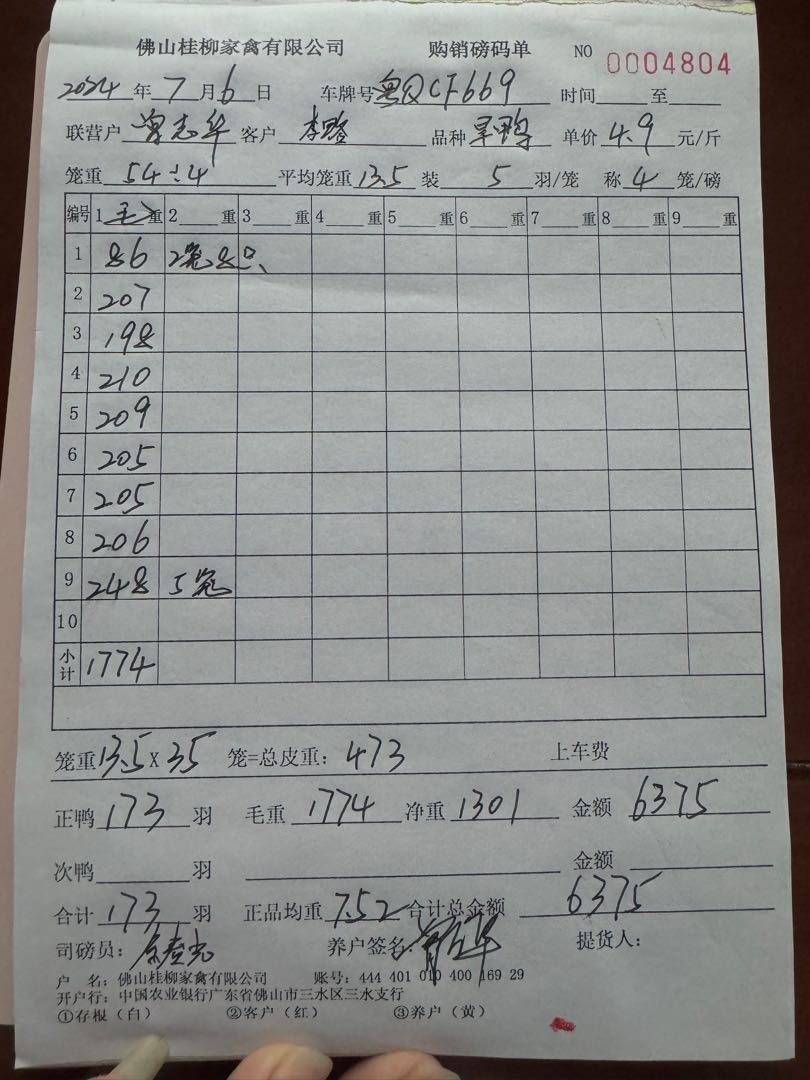 佛山桂柳家禽有限公司 购销磅码单 NO 0004804
2024年7月6日 车牌号粤QCF669 时间 至
联营户曾志华 客户 李 品种旱鸭 单价4.9元/斤
笼重54÷4 平均笼重13.5装5羽/笼 称4笼/磅
编号 1毛重 2 重 3 重 4 重 5 重 6 重 7 重 8 重 9 重
1 86 2笼8只
2 207
3 198
4 210
5 209
6 205
7 205
8 206
9 248 5笼
10
小计 1774
笼重13.5X35 笼=总皮重:473 上车费
正鸭173羽 毛重1774净重1301 金额6375
次鸭 羽 金额
合计173羽 正品均重7.52合计总金额6375
司磅员: 养户签名: 提货人:
户 名:佛山桂柳家禽有限公司 账号:444 401 010 400 169 29
开户行:中国农业银行广东省佛山市三水区三水支行
①存根(白) ②客户(红) ③养户(黄)